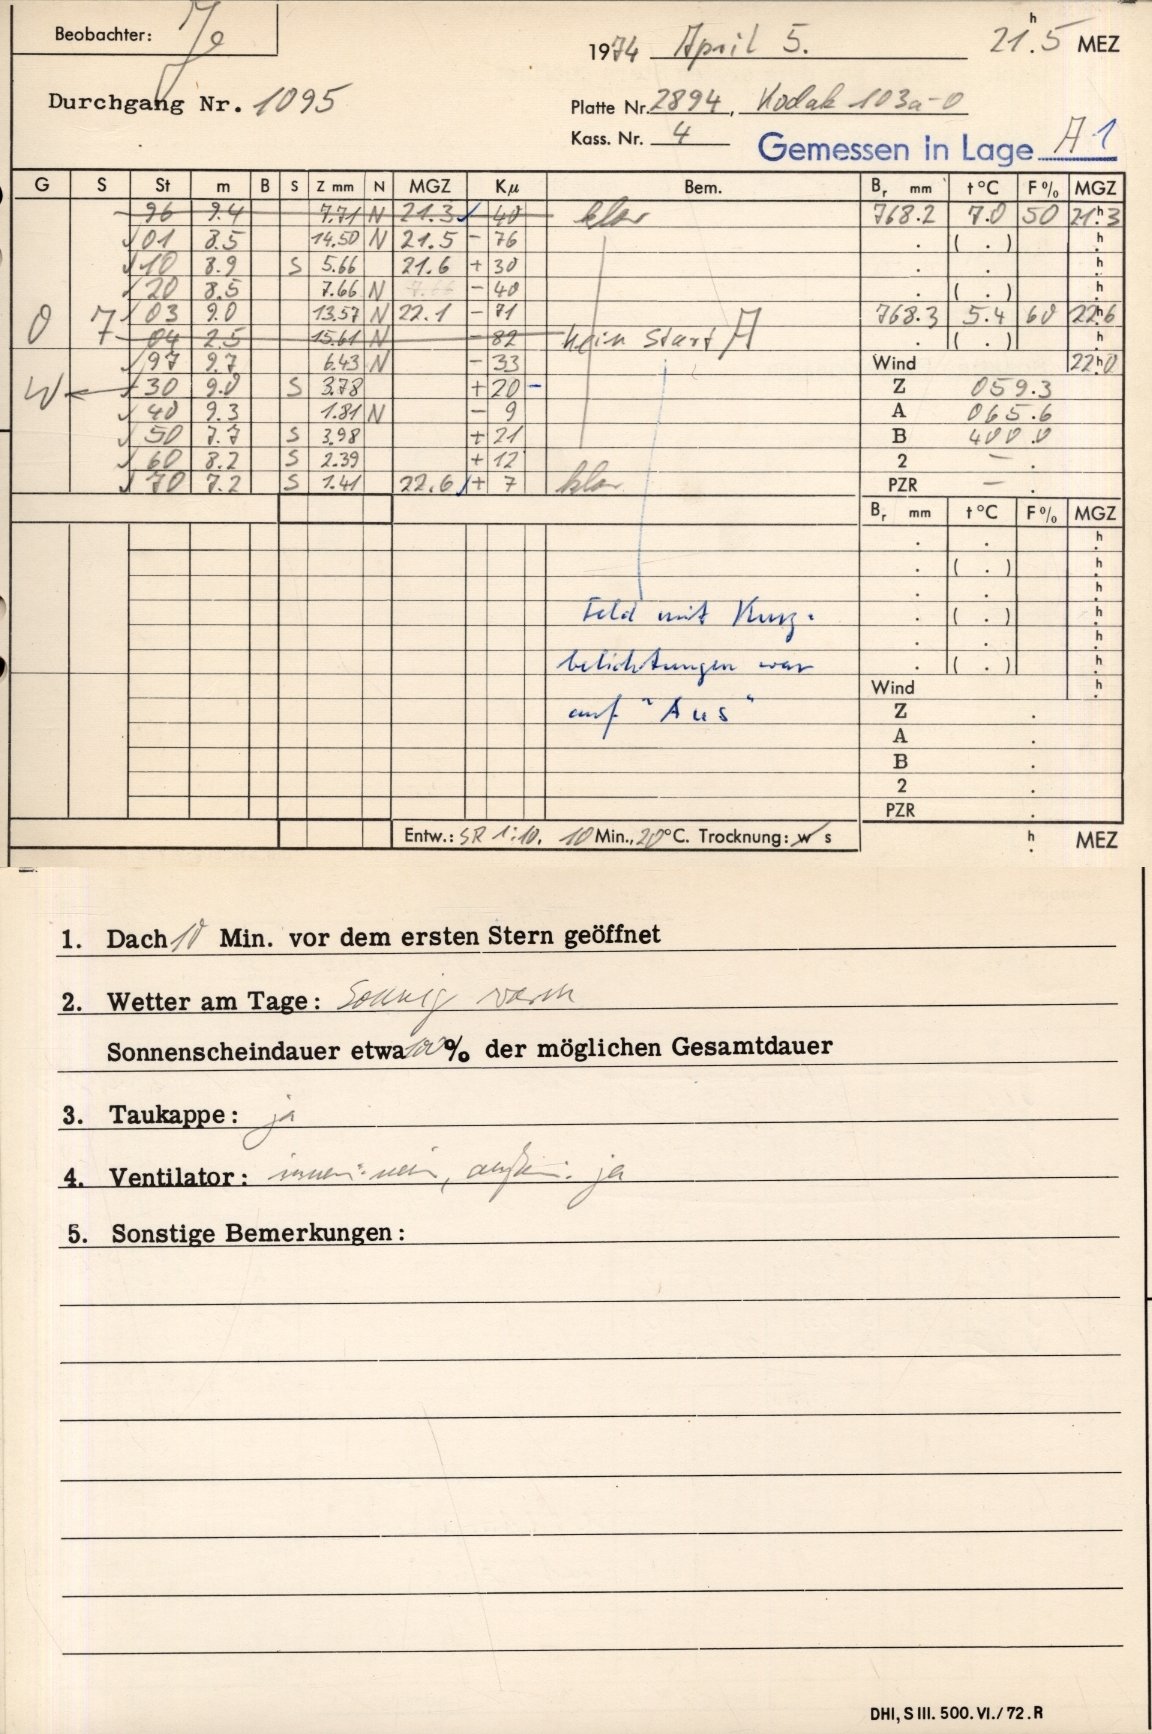 Beobachter:
1974 April 5. 21h.5 MEZ
Durchgang Nr. 1095
Platte Nr. 2894, Kodak 103a-O
Kass. Nr. 4
Gemessen in Lage A1
G S St m B S Z mm N MGZ Kµ Bem. Br mm t °C F % MGZ
96 9.4 7.71 N 21.3 - 40 klar 768.2 7.0 50 21h.3
01 8.5 14.50 N 21.5 - 76 . ( . ) h.
10 8.9 S 5.66 21.6 + 30 . . h.
20 8.5 7.66 N - 40 . ( . ) h.
0 7 03 9.0 13.57 N 22.1 - 71 768.3 5.4 60 22h.6
04 2.5 15.61 N - 82 kein Start A . ( . ) h.
97 9.7 6.43 N - 33 Wind 22h.0
W 30 9.0 S 3.78 + 20 - Z 059.3
40 9.3 1.81 N - 9 A 065.6
50 7.7 S 3.98 + 21 B 400.0
60 8.2 S 2.39 + 12 2 - .
70 7.2 S 1.41 22.6 + 7 klar PZR - .
Br mm t °C F % MGZ
. . h.
. ( . ) h.
. . h.
Feld mit Kurz- . ( . ) h.
. . h.
belichtungen war . ( . ) h.
Wind h.
auf "Aus" Z .
A .
B .
2 .
PZR .
Entw.: SR 1:10, 10 Min., 20°C. Trocknung: w s h. MEZ
1. Dach 10 Min. vor dem ersten Stern geöffnet
2. Wetter am Tage: Sonnig warm
Sonnenscheindauer etwa 100% der möglichen Gesamtdauer
3. Taukappe: ja
4. Ventilator: innen: nein, außen: ja
5. Sonstige Bemerkungen:
DHI, S III. 500. VI./72. R